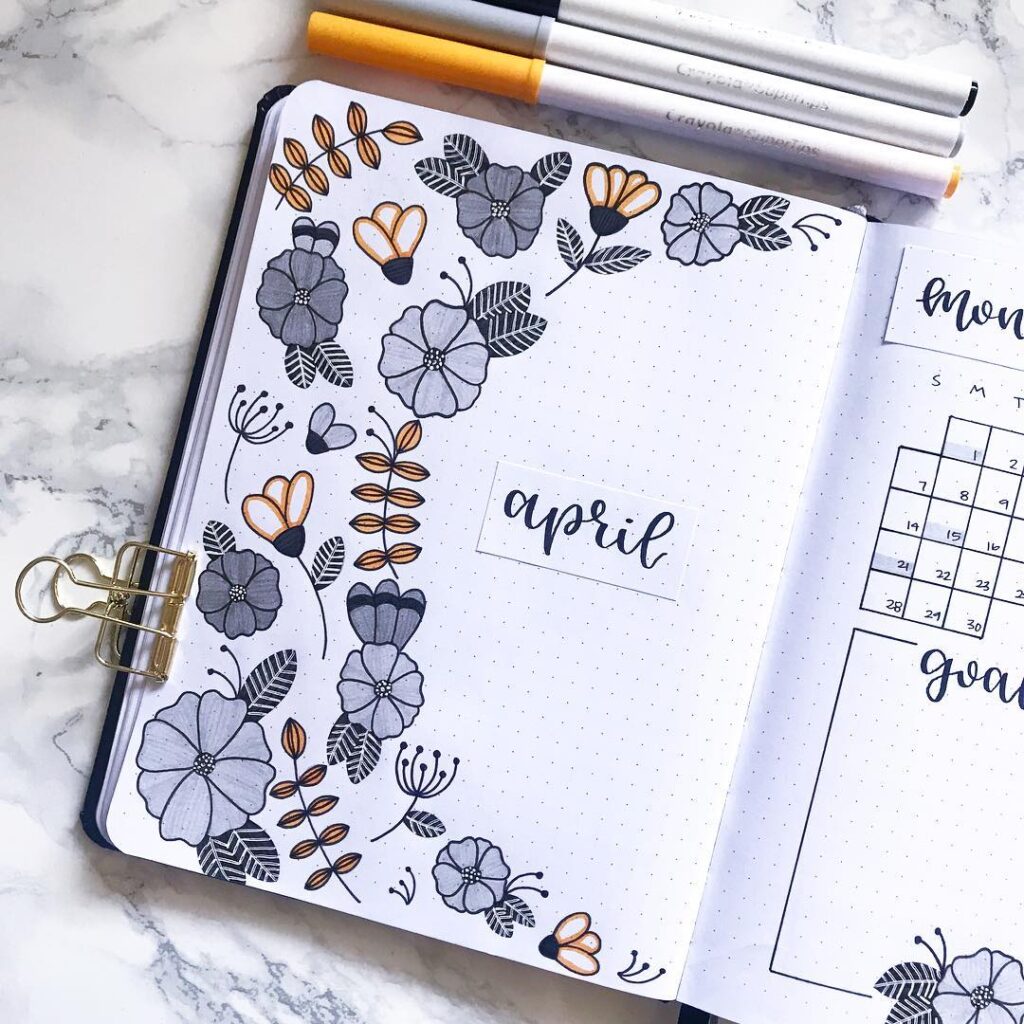 Crayola SuperTips
Crayola SuperTips
april
mon
S M T
1 2
7 8 9
14 15 16
21 22 23
28 29 30
goal